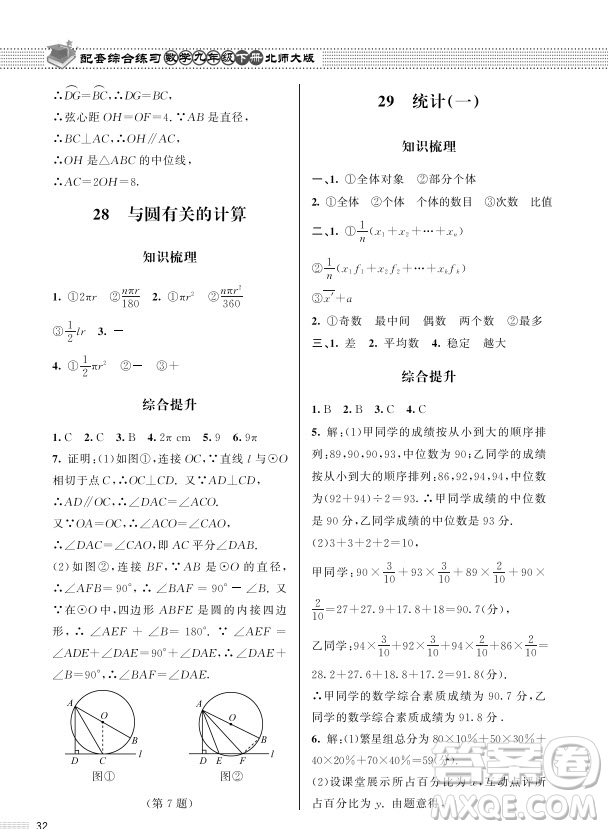 配套综合练习 数学九年级 下册 北师大版
∴DG=BC,∴DG=BC,
∴弦心距 OH=OF=4.∵AB 是直径,
∴BC⊥AC,∴OH∥AC,
∴OH 是△ABC 的中位线,
∴AC=2OH=8.
28 与圆有关的计算
知识梳理
1. ①2πr ②nπr/180 2. ①πr² ②nπr²/360
③1/2 lr 3. 一
4. ①1/2πr² ②— ③+
综合提升
1. C 2. C 3. B 4. 2π cm 5. 9 6. 9π
7. 证明:(1)如图①,连接 OC,∵直线 l 与⊙O
相切于点 C,∴OC⊥l.
又∵AD⊥l,∴AD∥OC,
∴∠DAC=∠ACO.
又∵OA=OC,∴∠ACO=∠CAO,
∴∠DAC=∠CAO,即 AC 平分∠DAB.
(2)如图②,连接 BF,∵AB 是⊙O 的直径,
∴∠AFB=90°,∴∠BAF=90°-∠B.
又∵在⊙O 中,四边形 ABFE 是圆的内接四边
形,∴∠AEF + ∠B = 180°. 又∵∠AEF =
∠ADE+∠DAE=90°+∠DAE,∴∠DAE
+∠B=90°,∴∠BAF=∠DAE.
A O B D C l
A O B D E F l
图① 图②
(第 7 题)
32
29 统计(一)
知识梳理
一、1. ①全体对象 ②部分个体
2. ①全体 ②个体 个体的数目 ③次数 比值
二、1. ①1/n(x₁+x₂+…+xₙ)
②1/n(x₁f₁+x₂f₂+…+xₖfₖ)
③x′+a
2. ①奇数 最中间 偶数 两个数 ②最多
三、1. 差 2. 平均数 4. 稳定 越大
综合提升
1. B 2. B 3. C 4. C
5. 解:(1)甲同学的成绩按从小到大的顺序排
列:89,90,90,93,中位数为 90;乙同学的成绩
按从小到大的顺序排列:86,92,94,94,中位数
为(92+94)÷2=93. ∴甲同学成绩的中位数
是 90 分,乙同学成绩的中位数是 93 分.
(2)3+3+2+2=10,
甲同学:90×3/10+93×3/10+89×2/10+90×
2/10=27+27.9+17.8+18=90.7(分),
乙同学:94×3/10+92×3/10+94×2/10+86×2/10=
28.2+27.6+18.8+17.2=91.8(分).
∴甲同学的数学综合素质成绩为 90.7 分,乙
同学的数学综合素质成绩为 91.8 分.
6. 解:(1)繁星组总分为 80×10%+
(2)设课堂展示所占百分比为 x,互动点评所
占百分比为 y. 由题意得,